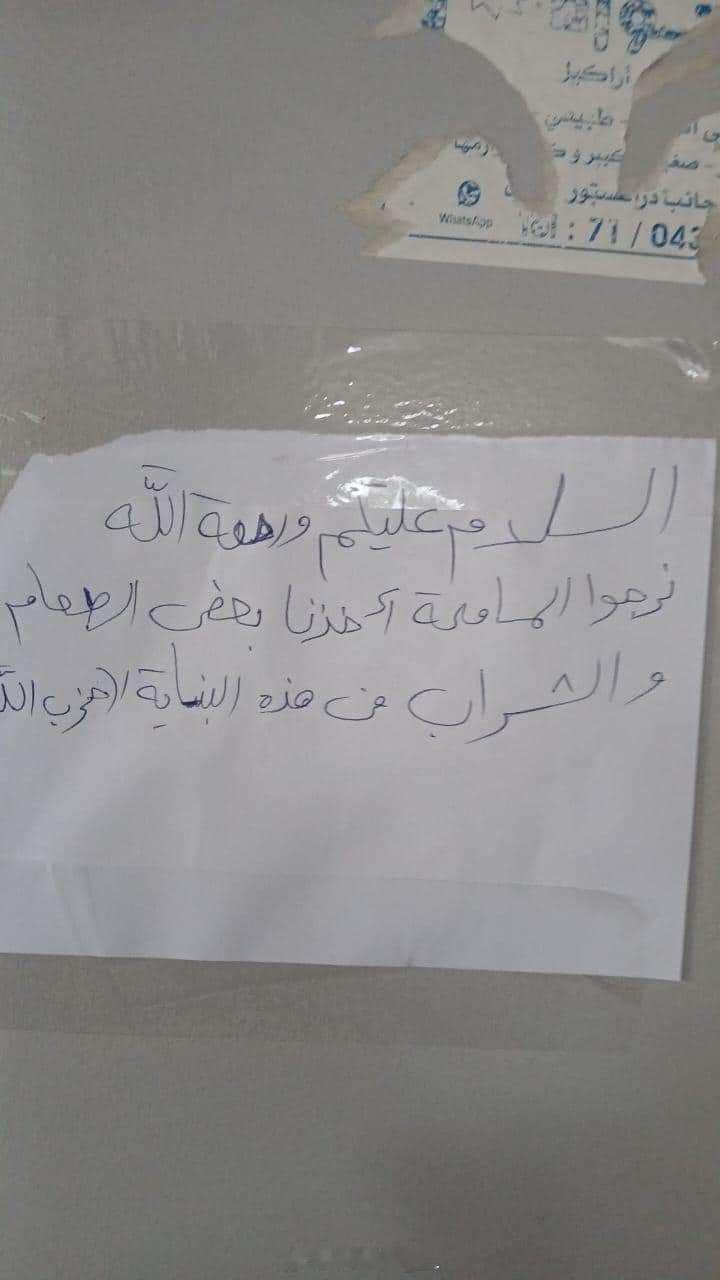 أراكيل
طبيش
صغير
كبير
WhatsApp
Tel : 71 / 043
السلام عليكم ورحمة الله
نرجوا المسامحة أخذنا بعض الطعام
والشراب من هذه البناية (حزب الله